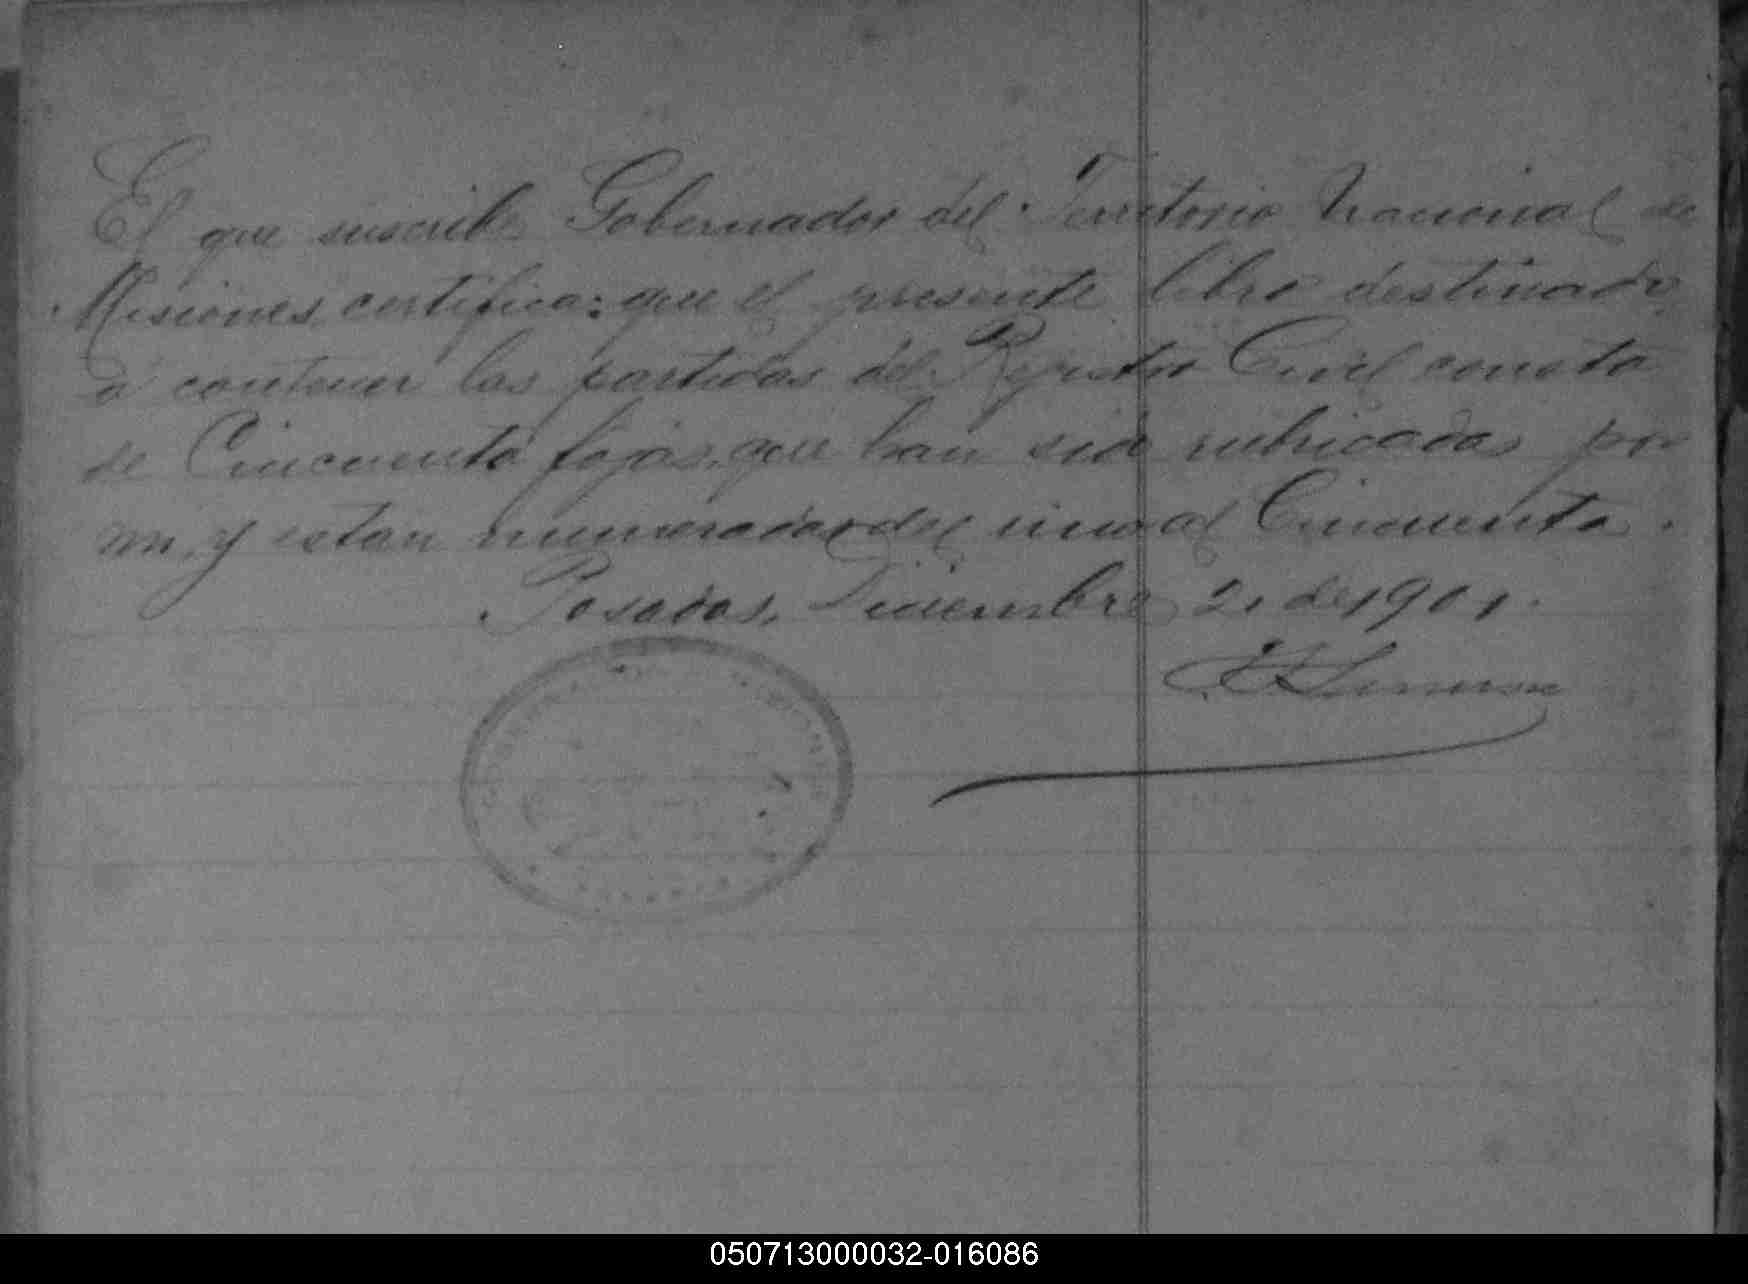 El que suscribe Gobernador del Territorio Nacional de
Misiones, certifica: que el presente libro destinado
á contener las partidas del Registro Civil consta
de Cincuenta fojas, que han sido rubricadas por
mi, y estan numeradas del uno al Cincuenta.
Posadas, Diciembre 21 de 1901.
050713000032-016086